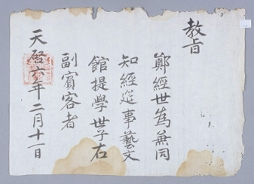 教旨
鄭經世爲兼同
知經筵事藝文
館提學世子右
副賓客者
天啓六年二月十一日